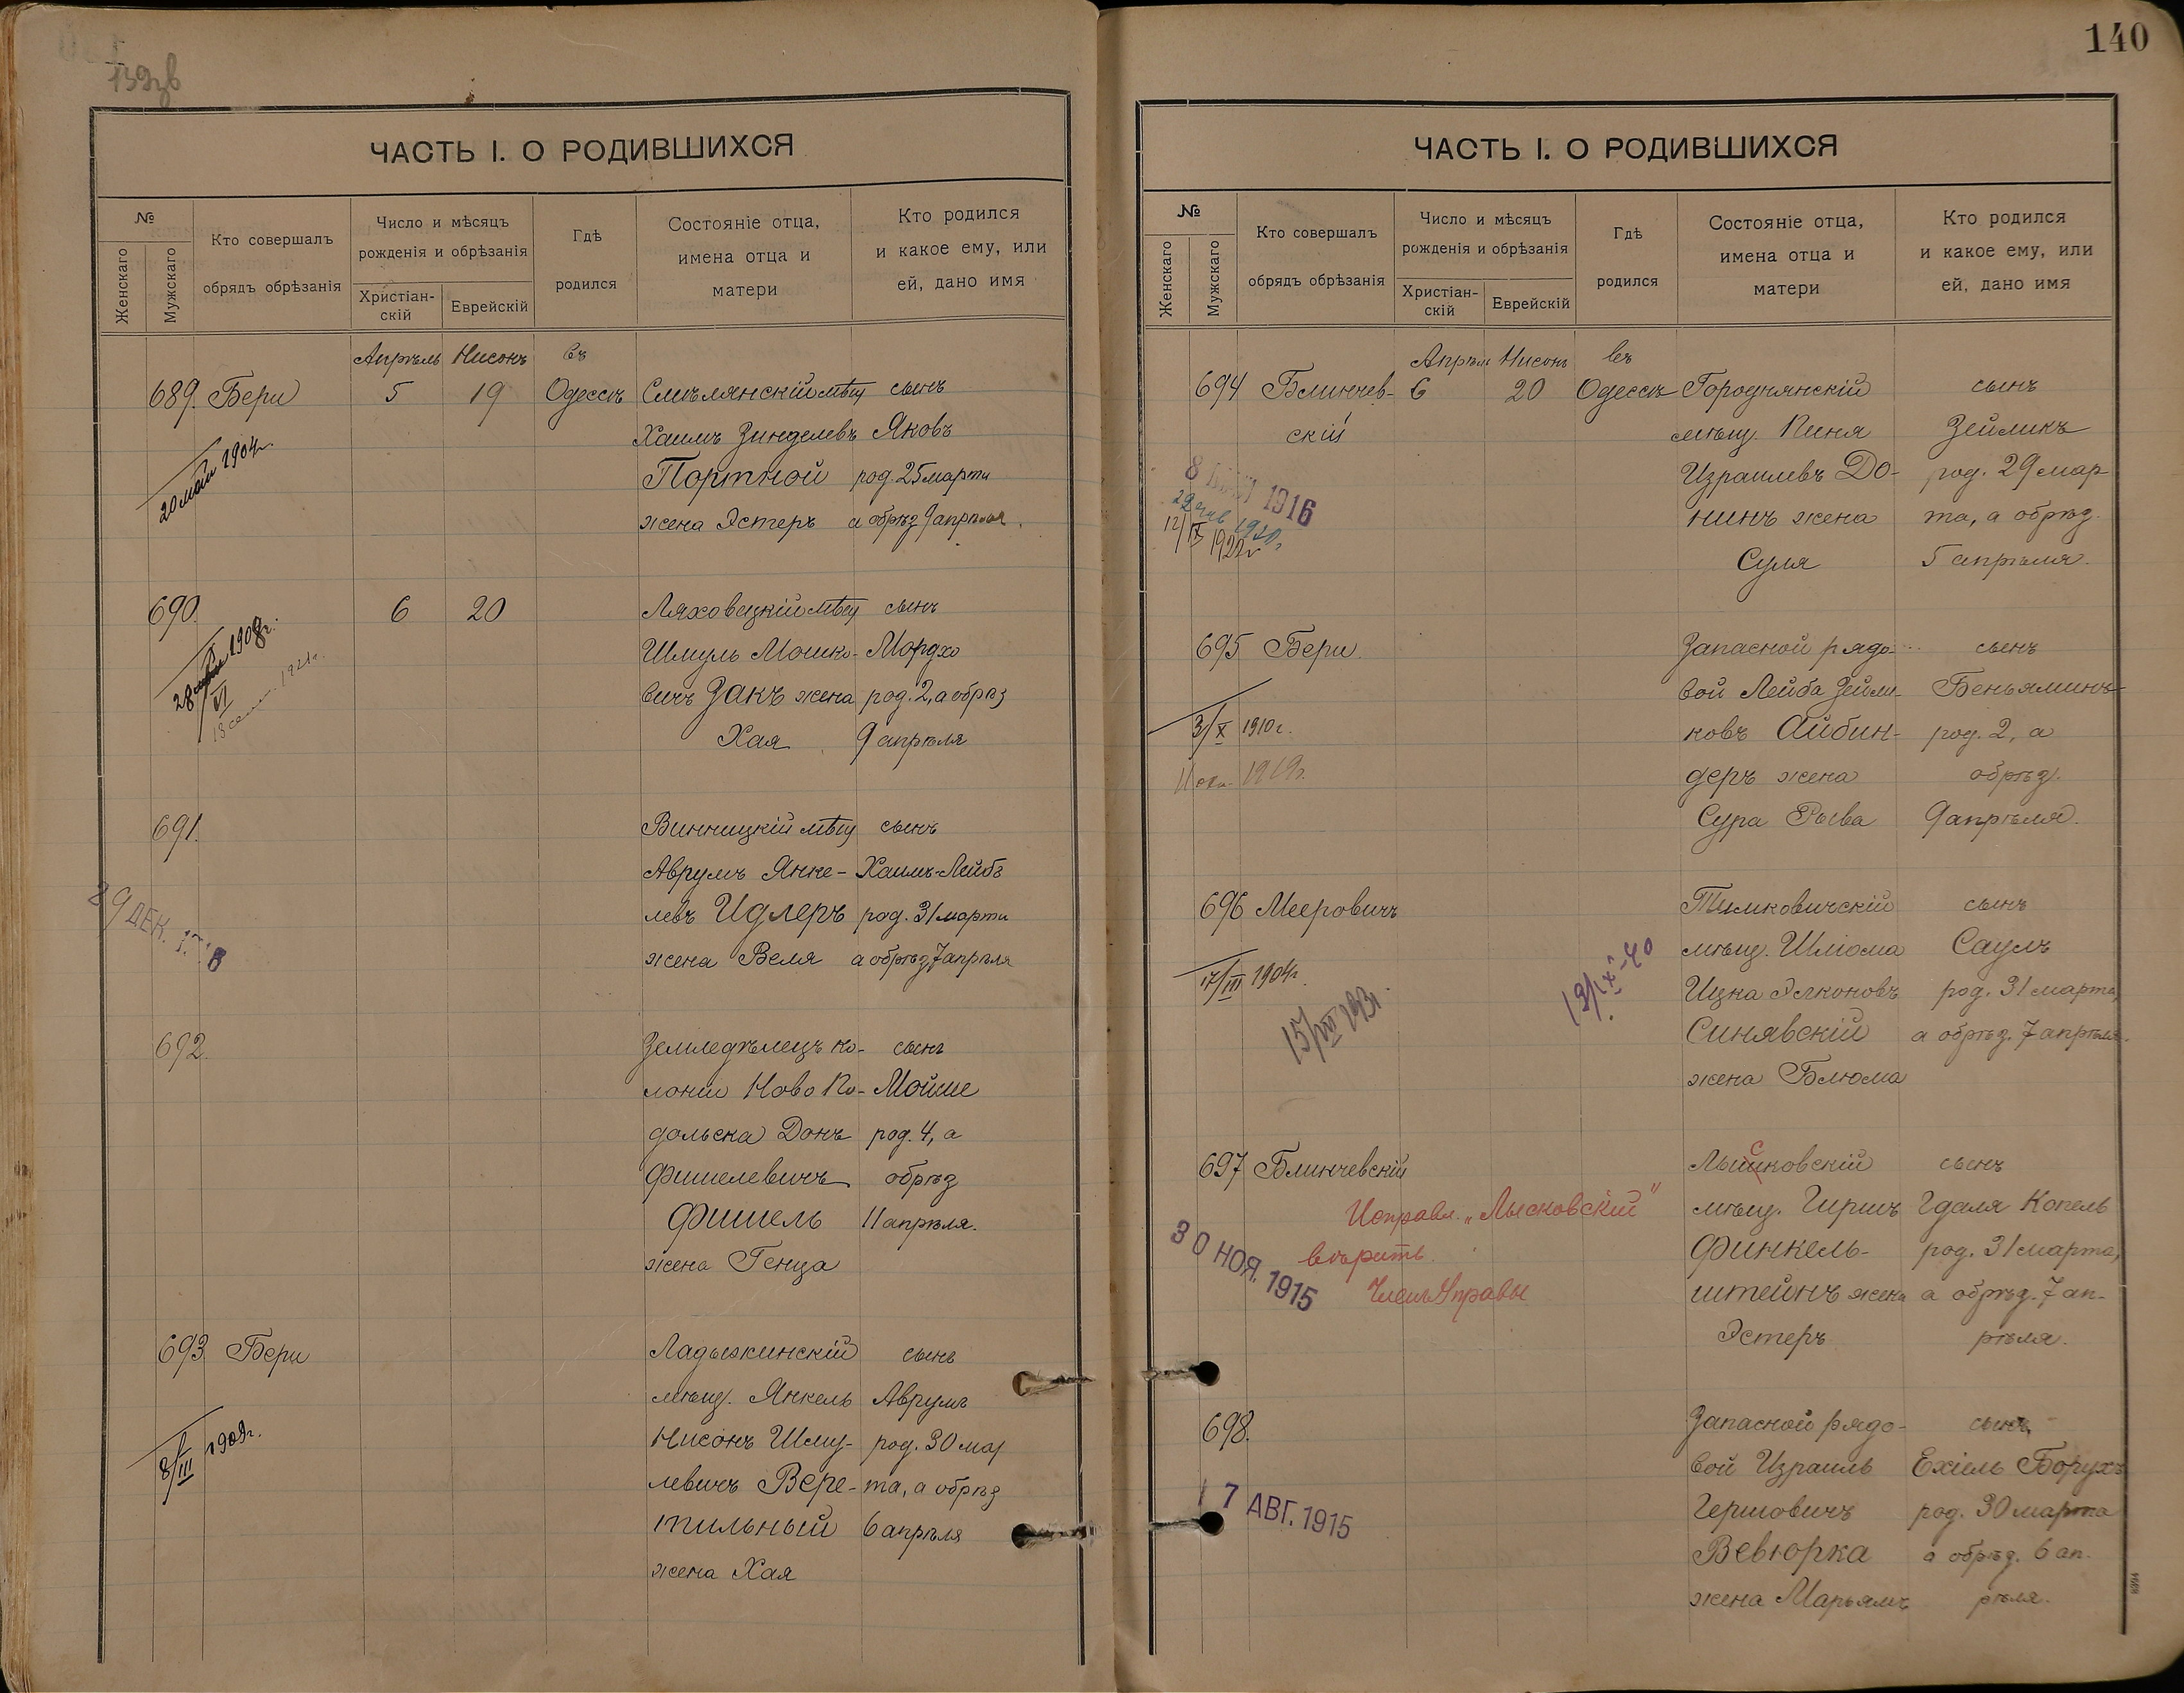 139зв
ЧАСТЬ I. О РОДИВШИХСЯ
№
Женскаго
Мужскаго
Кто совершалъ
обрядъ обрѣзанія
Число и мѣсяцъ
рожденія и обрѣзанія
Христіан-
скій
Еврейскій
Гдѣ
родился
Состояніе отца,
имена отца и
матери
Кто родился
и какое ему, или
ей, дано имя
Апрѣль Нисонъ въ
689. Бери 5 19 Одессѣ Смѣлянскій мѣщ сынъ
Хаимъ Зинделевъ Яковъ
Портной род. 25 марта
жена Эстеръ а обрѣз 9 апрѣля.
20 май 1904г.
690. 6 20 Ляховецкій мѣщ сынъ
Шмуль Мошко- Мордхо
вичъ Закъ жена род. 2, а обрѣз
Хая 9 апрѣля
28 1908г.
VI
1921г.
691. Винницкій мѣщ сынъ
Аврумъ Янке- Хаимъ-Лейбъ
левъ Идлеръ род. 31 марта
жена Веля а обрѣз 7 апрѣля
ДЕК.
692. Земледѣлецъ ко- сынъ
лоніи Ново По- Мойше
дольска Донъ род. 4, а
Фишелевичъ обрѣз
Фишель 11 апрѣля.
жена Генца
693 Бери Ладыжинскій сынъ
мѣщ. Янкель Аврумъ
Нисонъ Шму- род. 30 мар
левичъ Вере- та, а обрѣз
тильный 6 апрѣля
жена Хая
8/III 1909г.
140
ЧАСТЬ I. О РОДИВШИХСЯ
№
Женскаго
Мужскаго
Кто совершалъ
обрядъ обрѣзанія
Число и мѣсяцъ
рожденія и обрѣзанія
Христіан-
скій
Еврейскій
Гдѣ
родился
Состояніе отца,
имена отца и
матери
Кто родился
и какое ему, или
ей, дано имя
Апрѣль Нисонъ въ
694 Блинчев- 6 20 Одессѣ Городнянскій сынъ
скій мѣщ. Пиня Зейликъ
Израилевъ До- род. 29 мар
нинъ жена та, а обрѣз.
Суля 5 апрѣля.
8 1916
1920г
12/IX 1922г
695 Бери Запасной рядо- сынъ
вой Лейба Зейли- Беньяминъ
ковъ Айбин- род. 2, а
деръ жена обрѣз.
Сура Рыва 9 апрѣля.
3/X 1910г.
11 1919г.
696 Мееровичъ Тимковичскій сынъ
мѣщ. Шлiома Саулъ
Ицка Элконовъ род. 31 марта,
Синявскій а обрѣз. 7 апрѣля.
жена Блюма
17/III 1904г.
15/VII 1931.
697 Блинчевскій Лышковскій сынъ
с
мѣщ. Гиршъ Гдаля Копель
Финкель- род. 31 марта,
штейнъ жена а обрѣз. 7 ап-
Эстеръ рѣля.
Исправл. „Лысковскій"
вѣрить.
Членъ Управы
30 НОЯ. 1915
698. Запасной рядо- сынъ
вой Израиль Ехіель Борухъ
Гершовичъ род. 30 марта
Вевюрка а обрѣз. 6 ап.
жена Марьямъ рѣля.
17 АВГ. 1915